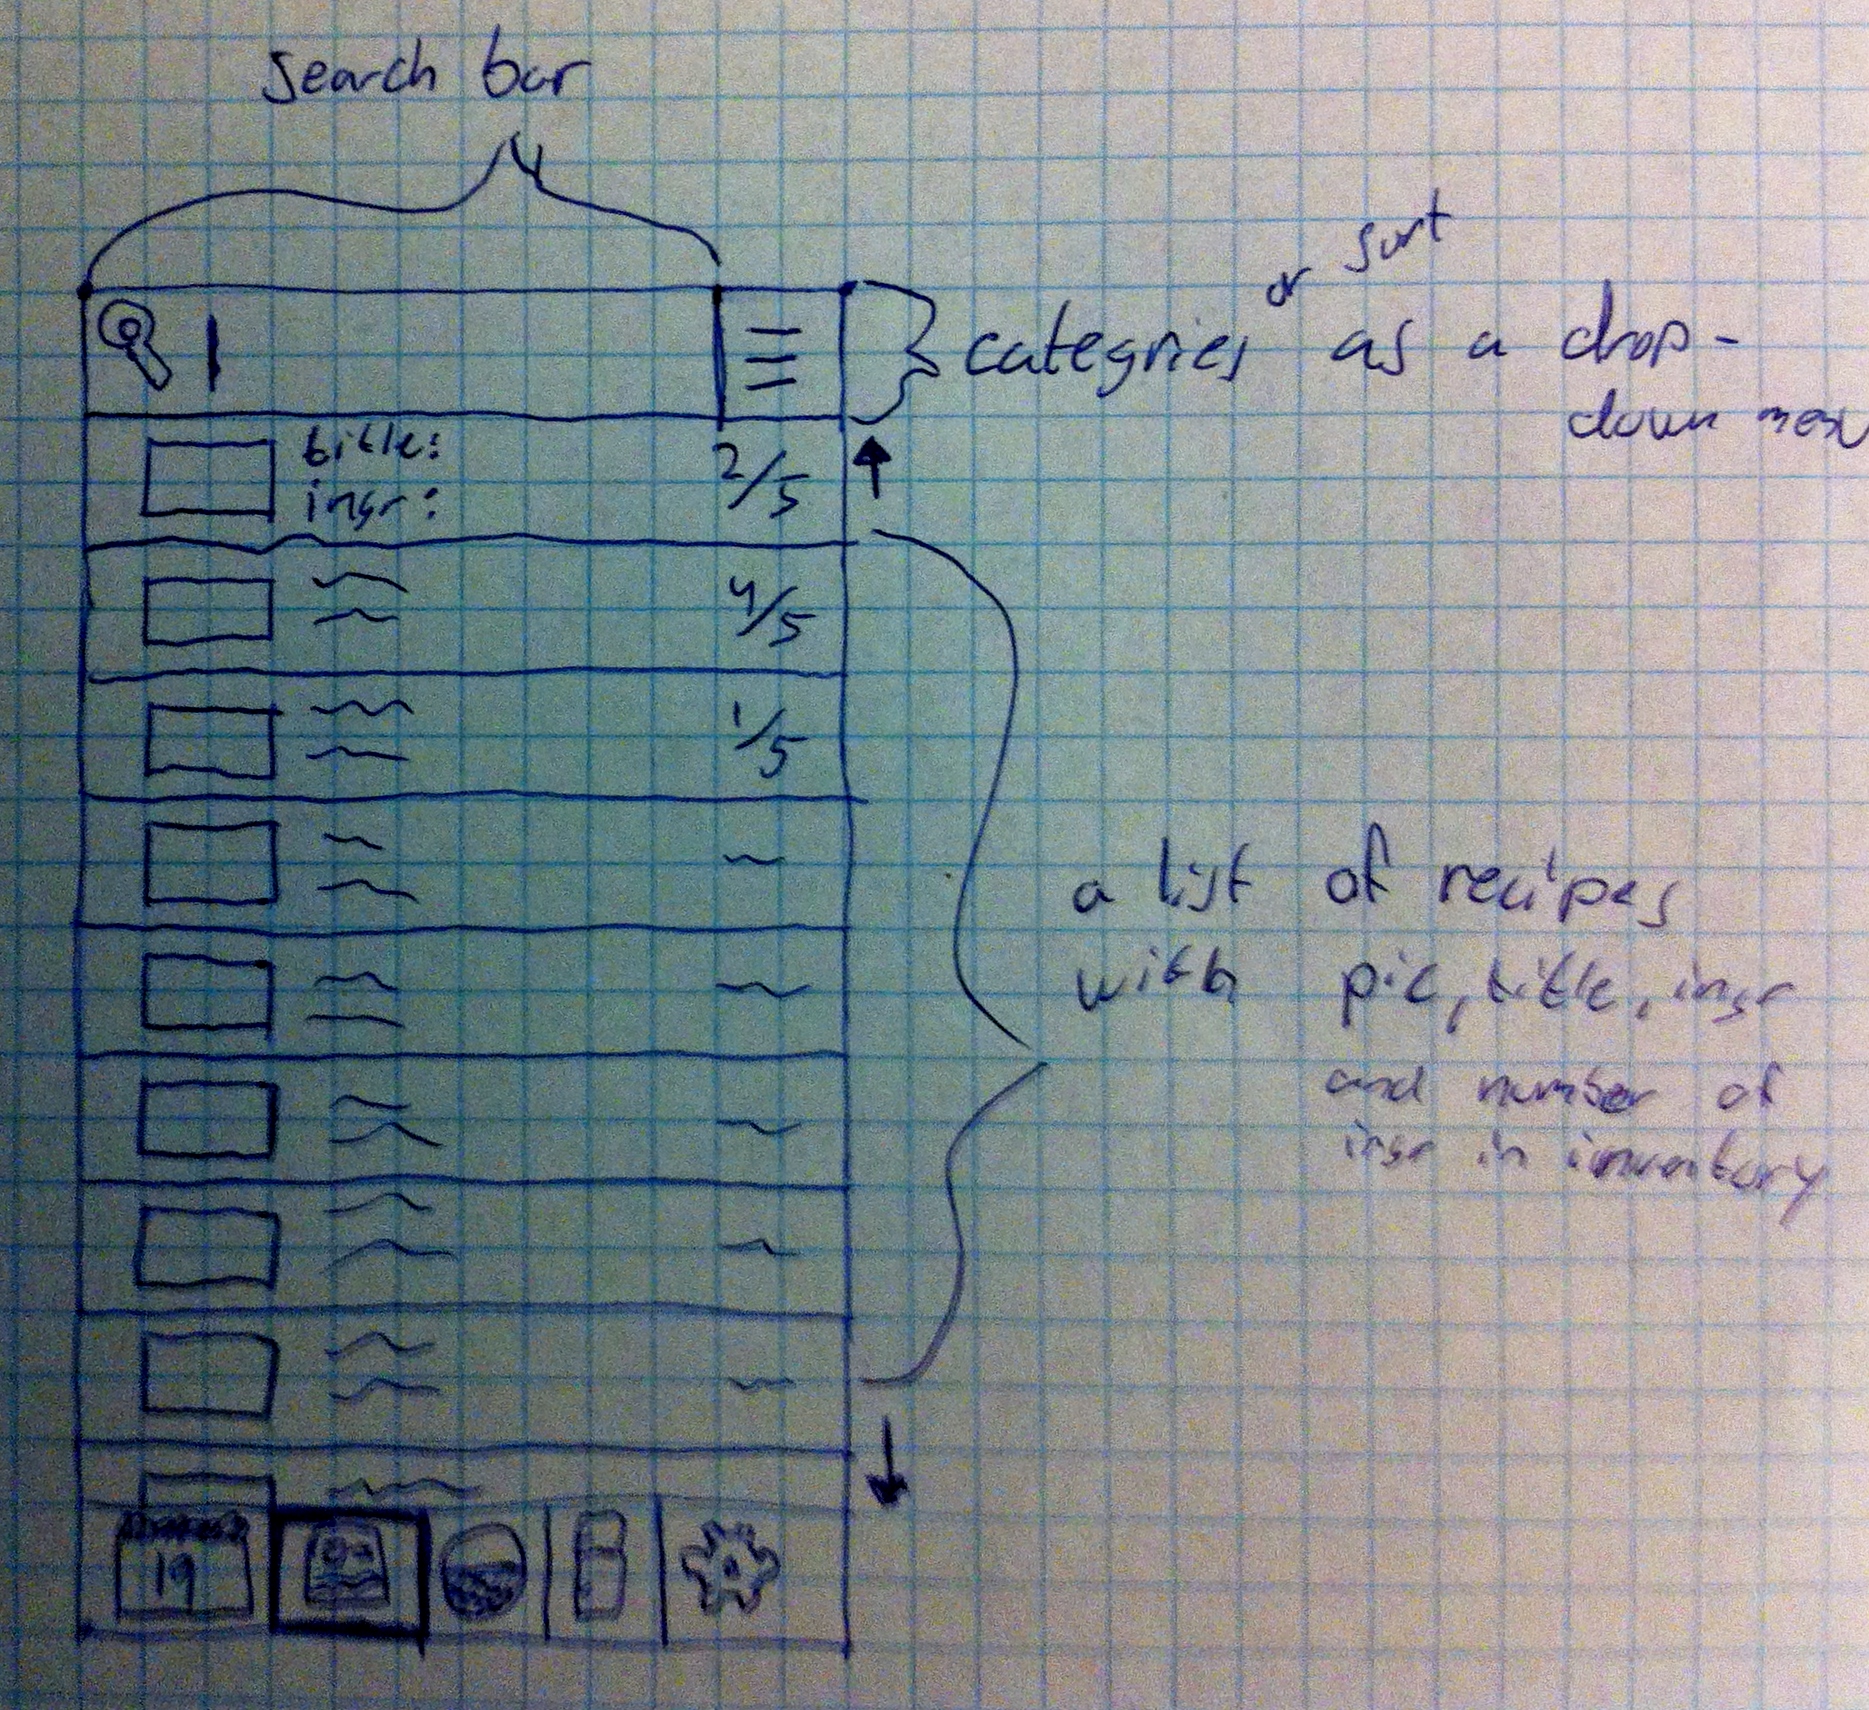 Search bar
or sort
categries as a drop-
down menu
title:
ingr:
2/5
4/5
1/5
a list of recipes
with pic, title, ingr
and number of
ingr in inventory
19